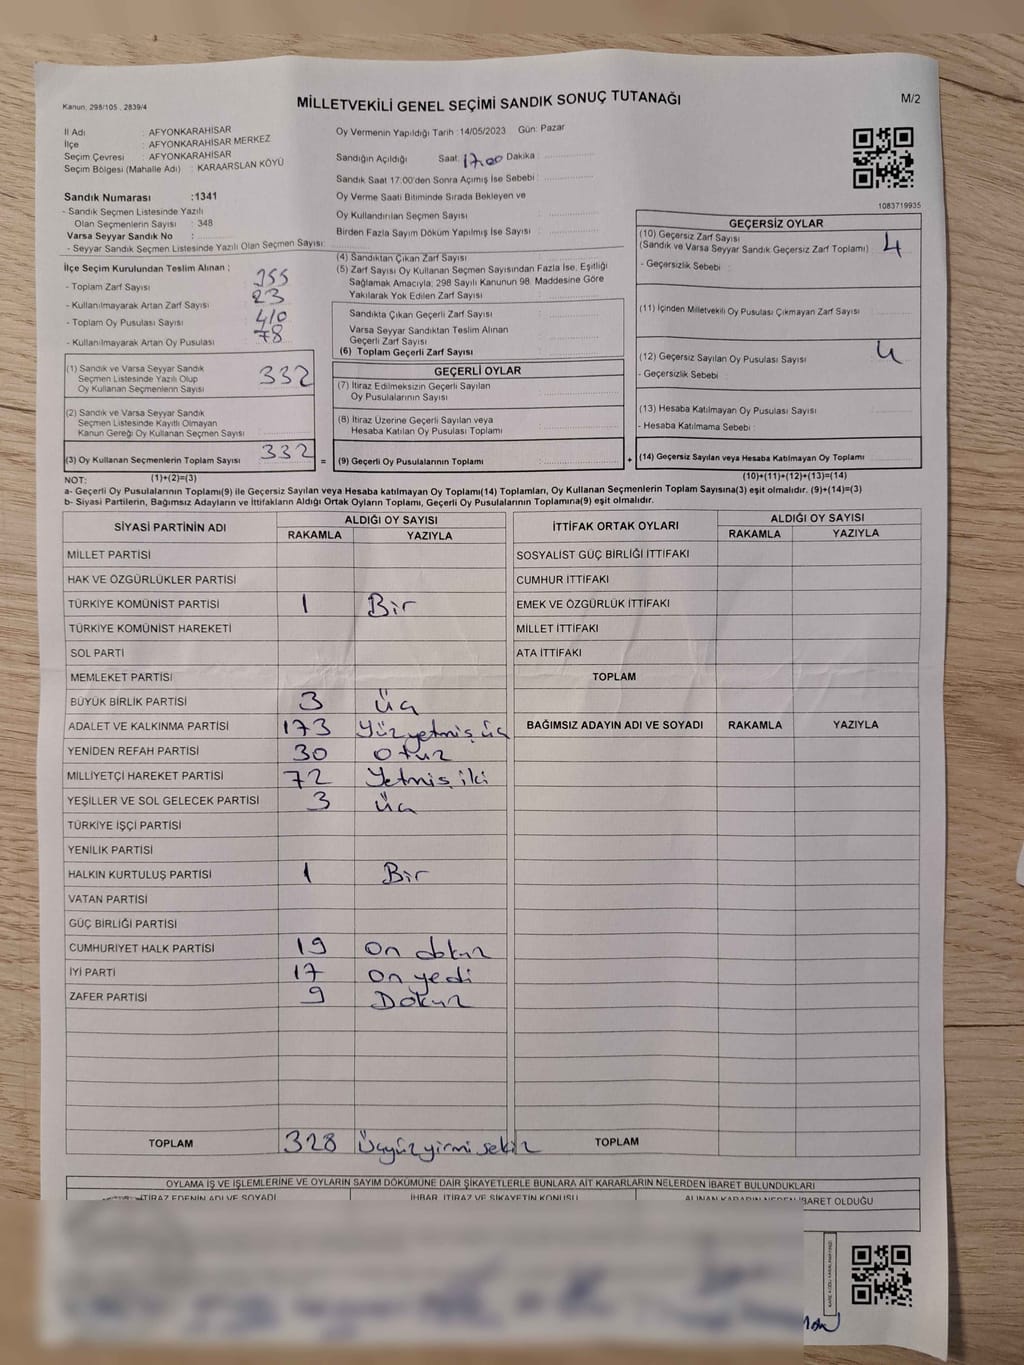 Kanun, 298/105 , 2839/4
MİLLETVEKİLİ GENEL SEÇİMİ SANDIK SONUÇ TUTANAĞI
M/2
İl Adı : AFYONKARAHİSAR
İlçe : AFYONKARAHİSAR MERKEZ
Seçim Çevresi : AFYONKARAHİSAR
Seçim Bölgesi (Mahalle Adı) : KARAARSLAN KÖYÜ
Sandık Numarası :1341
- Sandık Seçmen Listesinde Yazılı
Olan Seçmenlerin Sayısı : 348
Varsa Seyyar Sandık No :
- Seyyar Sandık Seçmen Listesinde Yazılı Olan Seçmen Sayısı:
İlçe Seçim Kurulundan Teslim Alınan ;
- Toplam Zarf Sayısı 355
- Kullanılmayarak Artan Zarf Sayısı 23
- Toplam Oy Pusulası Sayısı 410
- Kullanılmayarak Artan Oy Pusulası 78
(1) Sandık ve Varsa Seyyar Sandık
Seçmen Listesinde Yazılı Olup
Oy Kullanan Seçmenlerin Sayısı 332
(2) Sandık ve Varsa Seyyar Sandık
Seçmen Listesinde Kayıtlı Olmayan
Kanun Gereği Oy Kullanan Seçmen Sayısı
(3) Oy Kullanan Seçmenlerin Toplam Sayısı 332 =
(1)+(2)=(3)
Oy Vermenin Yapıldığı Tarih :14/05/2023 Gün: Pazar
Sandığın Açıldığı Saat: 17.00 Dakika :
Sandık Saat 17:00'den Sonra Açımış İse Sebebi :
Oy Verme Saati Bitiminde Sırada Bekleyen ve
Oy Kullandırılan Seçmen Sayısı
Birden Fazla Sayım Döküm Yapılmış İse Sayısı :
(4) Sandıktan Çıkan Zarf Sayısı
(5) Zarf Sayısı Oy Kullanan Seçmen Sayısından Fazla İse, Eşitliği
Sağlamak Amacıyla; 298 Sayılı Kanunun 98. Maddesine Göre
Yakılarak Yok Edilen Zarf Sayısı
Sandıkta Çıkan Geçerli Zarf Sayısı
Varsa Seyyar Sandıktan Teslim Alınan
Geçerli Zarf Sayısı
(6) Toplam Geçerli Zarf Sayısı
GEÇERLİ OYLAR
(7) İtiraz Edilmeksizin Geçerli Sayılan
Oy Pusulalarının Sayısı
(8) İtiraz Üzerine Geçerli Sayılan veya
Hesaba Katılan Oy Pusulası Toplamı
(9) Geçerli Oy Pusulalarının Toplamı : +
1083719935
GEÇERSİZ OYLAR
(10) Geçersiz Zarf Sayısı
(Sandık ve Varsa Seyyar Sandık Geçersiz Zarf Toplamı) 4
- Geçersizlik Sebebi :
(11) İçinden Milletvekili Oy Pusulası Çıkmayan Zarf Sayısı
(12) Geçersiz Sayılan Oy Pusulası Sayısı 4
- Geçersizlik Sebebi
(13) Hesaba Katılmayan Oy Pusulası Sayısı
- Hesaba Katılmama Sebebi :
(14) Geçersiz Sayılan veya Hesaba Katılmayan Oy Toplamı
(10)+(11)+(12)+(13)=(14)
NOT:
a- Geçerli Oy Pusulalarının Toplamı(9) ile Geçersiz Sayılan veya Hesaba katılmayan Oy Toplamı(14) Toplamları, Oy Kullanan Seçmenlerin Toplam Sayısına(3) eşit olmalıdır. (9)+(14)=(3)
b- Siyasi Partilerin, Bağımsız Adayların ve İttifakların Aldığı Ortak Oyların Toplamı, Geçerli Oy Pusulalarının Toplamına(9) eşit olmalıdır.
SİYASİ PARTİNİN ADI ALDIĞI OY SAYISI
RAKAMLA YAZIYLA
MİLLET PARTİSİ
HAK VE ÖZGÜRLÜKLER PARTİSİ
TÜRKİYE KOMÜNİST PARTİSİ 1 Bir
TÜRKİYE KOMÜNİST HAREKETİ
SOL PARTİ
MEMLEKET PARTİSİ
BÜYÜK BİRLİK PARTİSİ 3 Üç
ADALET VE KALKINMA PARTİSİ 173 Yüzyetmiş üç
YENİDEN REFAH PARTİSİ 30 Otuz
MİLLİYETÇİ HAREKET PARTİSİ 72 Yetmiş iki
YEŞİLLER VE SOL GELECEK PARTİSİ 3 Üç
TÜRKİYE İŞÇİ PARTİSİ
YENİLİK PARTİSİ
HALKIN KURTULUŞ PARTİSİ 1 Bir
VATAN PARTİSİ
GÜÇ BİRLİĞİ PARTİSİ
CUMHURİYET HALK PARTİSİ 19 On dokuz
İYİ PARTİ 17 On yedi
ZAFER PARTİSİ 9 Dokuz
TOPLAM 328 Üçyüzyirmi sekiz
İTTİFAK ORTAK OYLARI ALDIĞI OY SAYISI
RAKAMLA YAZIYLA
SOSYALİST GÜÇ BİRLİĞİ İTTİFAKI
CUMHUR İTTİFAKI
EMEK VE ÖZGÜRLÜK İTTİFAKI
MİLLET İTTİFAKI
ATA İTTİFAKI
TOPLAM
BAĞIMSIZ ADAYIN ADI VE SOYADI RAKAMLA YAZIYLA
TOPLAM
OYLAMA İŞ VE İŞLEMLERİNE VE OYLARIN SAYIM DÖKÜMÜNE DAİR ŞİKAYETLERLE BUNLARA AİT KARARLARIN NELERDEN İBARET BULUNDUKLARI
İTİRAZ EDENİN ADI VE SOYADI İHBAR, İTİRAZ VE ŞİKAYETİN KONUSU ALINAN KARARIN NEDEN İBARET OLDUĞU